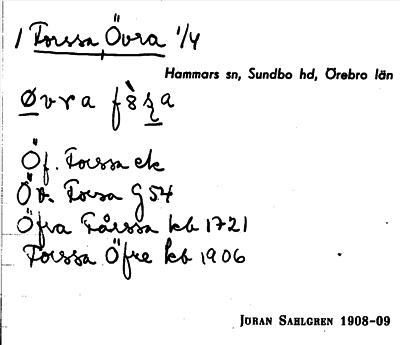 1 Forssa Övra 1/4
Hammars sn, Sundbo hd, Örebro län
Øvra
Öf. Forssa ek
Öv. Forsa G54
Öfra Fårssa kb 1721
Forssa Öfre kb 1906
JÖRAN SAHLGREN 1908-09